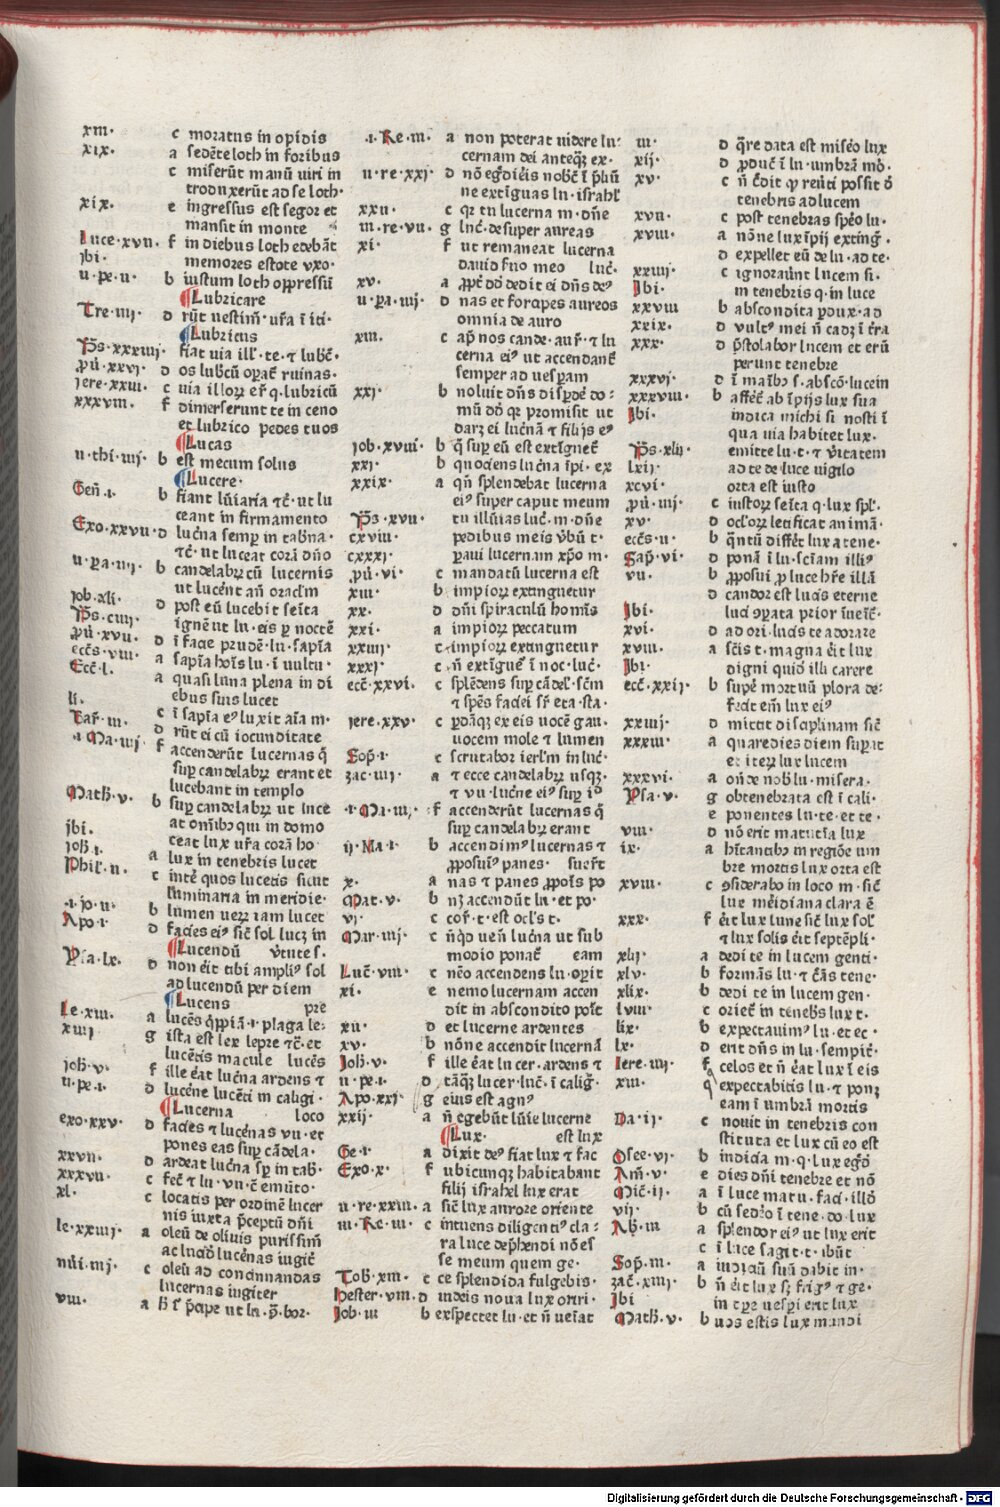 xiii· c moratus in opidis
xix· a sedēte loth in foribus
c miserūt manū uiri in
troduxerūt ad se loth·
xix· e ingressus est segor et
mansit in monte
Luce·xvii· f in diebus loth edebāt
jbi· memores estote vxo·
ii·pe·ii· b iustum loth oppressū
Lubricare
Tre·iiij· d rūt uestim̄·ur̄a ī iti·
Lubricus
Ps̄·xxxiiij· fiat uia ill'·te·τ lubc̄·
ꝓu·xxvj· d os lubc̄ū opat̄ ruinas·
jere·xxiii· c uia illoꝝ er̄ q·lubricū
xxxviii· f dimerserunt te in ceno
et lubrico pedes tuos
Lucas
ii·thi·iiij· b est mecum solus
Lucere·
Gen̄·i· b fiant lūiaria τc̄·ut lu
ceant in firmamento
Exo·xxvii· d luc̄na semp in tab̄na·
τc̄·ut luceat corā dn̄o
ii·pa·iiij· b candelabꝝ cū lucernis
ut lucēnt an̄ oraclm̄
job·xli· d post eū lucebit seīta
Ps̄·ciiij· ignē ut lu·eis p noctē
ꝓu·xvii· d ī facie prudē·lu·sapīa
ecc̄s·viii· a sapīa hoīs lu·ī uultu·
Ecc̄·l· a quasi luna plena in di
ebus suis lucet
li· c ī sapīa eꝰ luxit aīa m·
Bar̄·iii· d rūt ei cū iocunditate
·i·Ma·iiij· f accenderūt lucernas q̄
sup candelabꝝ erant et
lucebant in templo
Math·v· b sup candelabꝝ ut luce
at om̄ibꝰ qui in domo
jbi· ceat lux ur̄a corā ho·
joh̄·i· a lux in tenebris lucet
Phil'·ii· c intē quos lucetis sicut
luminaria in meridie·
·i·jo·ii· b lumen ueꝝ iam lucet
Apo·i· d facies eiꝰ sic̄ sol lucꝫ in
Lucendū v̄tute s·
Ysa·lx· d non ēit tibi ampliꝰ sol
ad lucendū per diem
Lucens pre
Le·xiii· a lucēs q̄ppiā·i·plaga le·
xiiij g ista est lex lepre τc̄·et
lucētis macule lucēs
joh̄·v· f ille ēat luc̄na ardens τ
ii·pe·i· d lucēne lucēti in caligi·
Lucerna loco
exo·xxv· d facies τ lucēnas vii·et
pones eas sup cādela·
xxvii· d ardeat luc̄na sp in tab̄·
xxxvii· c fec̄ τ lu·vii·c̄ emūto·
xl· c locatis per ordinē lucer
nis iuxta p̄ceptū dn̄i
le·xxiiij· a oleū de oliuis purissim̄
ac lucid̄ lucēnas iugit̄
nūi·iiij· c oleū ad concinnandas
lucernas iugiter
viii·
·i·Re·iii· a non poterat uidere lu·
cernam dei anteqꝫ ex·
ii·re·xxj· d nō eg̊diēis nobc̄ ī plīū
ne extīguas lu·israhl'
xxii· c qꝛ tu lucerna m·dn̄e
iii·re·vii· g luc̄·desuper aureas
xi· f ut remaneat lucerna
dauid suo meo luc̄·
xv· a ꝓpt̄ dd̄ dedit ei dn̄s deꝰ
ii·pa·iiij· d nas et forcipes aureos
omnia de auro
xiii· c ap̄ nos cande·aur̄·τ lu
cerna eiꝰ ut accendant̄
semper ad uesꝑam
xxj· b noluit dn̄s dispdē do·
mū dd̄ qꝛ promisit ut
darꝫ ei luc̄nā τ filijs eꝰ
job·xviii· b q̄ sup eū est extīguet̄
xxj· b quociens luc̄na īpi·ex
xxix· a qn̄ splendebat lucerna
eiꝰ super caput meum
Ps̄·xvii· tu illūias luc̄·m·dn̄e
cxviii· pedibus meis v̄bū t·
cxxxj· paui lucernam xp̄o m·
ꝓu·vi· c mandatū lucerna est
xiii· b impioꝝ extinguetur
xx· d dn̄i spiraculū homīs
xxi· a impioꝝ peccatum
xxiiij· c impioꝝ extinguetur
xxxj· c n̄ extīguet̄ ī noc·luc̄·
ecc̄·xxvi· c splēdens sup cādel'·sc̄m
τ spēs faciei sr̄ eta·sta·
jere·xxv· c pdāqꝫ ex eis uocē gau·
uocem mole τ lumen
Sop̄·i· c scrutabor ierl'm in luc̄·
zac·iiij· a τ ecce candelabꝝ usqꝫ·
τ vii·luc̄ne eiꝰ sup id̄
·i·Ma·iiij· f accenderūt lucernas q̄
sup candelabꝝ erant
ij·Ma·i· b accendimꝰ lucernas τ
ꝓposuiꝰ panes· suer̄t
x· a nas τ panes ꝓpoīs po
Mat·v· b nꝫ accendūt lu·et po·
vj· c cor̄·t·est ocl's t·
Mar·iiij· c nūqd uen̄ luc̄na ut sub
modio ponat̄ eam
Luc̄·viii· c nēo accendens lu·opit
xi· e nemo lucernam accen
dit in abscondito poīt
xii· d et lucerne ardentes
xv· b nōne accendit lucernā
Joh̄·v· f ille ēat lucer·ardens τ
ii·pe·i· d tāqꝫ lucer·luc̄·ī caliḡ·
Apo·xxj· g eius est agnꝰ
xxij· a n̄ egebūt lūie lucerne
Lux· est lux
Ge·i· a dixit deꝰ fiat lux τ fac
Exo·x· f ubicunqꝫ habitabant
filij israhel lux erat
ii·re·xxiii· a sic̄ lux aurore oriente
iii·Re·iii· c intuens diligentiꝰ cla·
ra luce dep̄hendi nō es̄
se meum quem ge·
Tob̄·xiii· c ce splendida fulgebis·
hester·viii· d iudeis noua lux oriri·
Job·iii b exspectet lu·et n̄ ueīat
iii· d q̄re data est misēo lux
xij· d ꝓduc̄ ī lu·umbrā mō·
xv· c n̄ c̄dit ꝙ reūti possit d̄
tenebris ad lucem
xvii· c post tenebras spēo lu·
xviii· a nōne lux īpij extinḡ·
d expellet eū de lu·ad te·
xxiiij· c ignorauūnt lucem si·
Jbi· in tenebris q·in luce
xxviii b abscondita pdux·ad
xxix· d vultꝰ mei n̄ cadꝫ ī t̄ra
xxx· d p̄stolabor lucem et erū
perunt tenebre
xxxvj· d ī maībꝰ s·abscō·lucem
xxxviii· b affet̄ ab īpijs lux sua
Jbi· indica michi si nosti ī
qua uia habitet lux·
Ps̄·xlij· emitte lu·t·τ v̄itatem
lxij· ad te de·luce uigilo
xcvi· orta est iusto
ꝓu·iiij· c iustoꝝ seīta q·lux spl'·
xv· d ocl'oꝝ letificat animā·
ecc̄s·ii· b q̄ntū differt̄ lux a tene·
Sap̄·vi· d ponā ī lu·scīam illiꝰ
vii· b ꝓposui ꝓ luce hr̄e illā
d candor est lucis eterne
Jbi· luci ꝯpata prior īueīt̄·
xvi· d ad ori·lucis te adorare
xviii· a sc̄is t·magna ēit lux
Jbi· digni quid̄ illi carere
ecc̄·xxij· b supē mortuū plora de·
fecit em̄ lux eiꝰ
xxiiij· d mittit disciplinam sic̄
xxxiii· a quare dies diem supat
et iteꝝ lux lucem
xxxvi· a on̄de nob̄ lu·misera·
Ysa·v· g obtenebrata est ī cali·
e ponentes lu·te·et te·
viii· d nō erit matutīa lux
ix· a hītantibꝰ in regiōe um
bre mortis lux orta est
xviii· c ꝯsiderabo in loco m·sic̄
lux mēidiana clara ē
xxx· f ēit lux lune sic̄ lux sol'
τ lux solis ēit septēpli·
xlij· a dedi te in lucem genti·
xlv· b formās lu·τ c̄ās tene·
xlix· b dedi te in lucem gen·
lviii· c oriet̄ in tenēbs lux t·
lix· b expectauimꝰ lu·et ec·
lx· d erit dn̄s in lu·sempit̄·
Iere·iiij· f celos et n̄ ēat lux ī eis
xiii· q expectabitis lu·τ ponꝫ
eam ī umbrā mortis
Da·ij· c nouit in tenebris con
stituta et lux cū eo est
Osee·vj· b iudicia m·q·lux eg̊d
Am̄·v· e dies dn̄i tenebre et nō
Mic̄·ij· a ī luce matu·faci·illd̄
vij· b cū sedēo ī tene·do·lux
Ab̄·iii a splendor eiꝰ ut lux erit
c ī luce sagit·t·ibūt
Sop̄·iii· a iudiciū suū dabit in·
zac̄·xiiij· b n̄ ēit lux sꝫ frigꝰ τ ge·
Jbi in tpe uespi erit lux
Math̄·v· b uos estis lux mundi
Digitalisierung gefördert durch die Deutsche Forschungsgemeinschaft - DFG